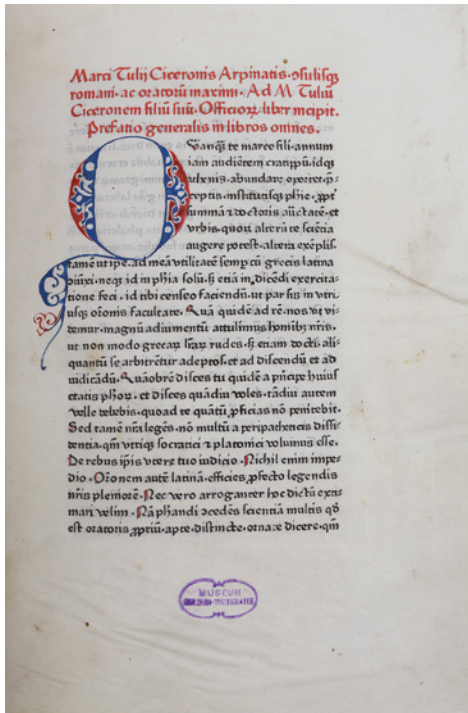 Marci Tulij Ciceronis Arpinatis·ꝯsulisqꝫ
romani·ac oratorũ maximi·Ad M Tuliũ
Ciceronem filiũ suũ·Officioꝝ liber incipit.
Prefatio generalis in libros omnes.
Quanqꝫ te marce fili·annum
iam audiẽtem cratippũ·idqꝫ
athenis·abundare oportet p̃-
ceptis institutisqꝫ phie·ꝓpt̃
summã ⁊ doctoris auctatẽ·et
vrbis·quoꝝ alterũ te sciẽcia
augere potest·altera exẽplis.
tamẽ ut ipe·ad meã utilitatẽ semp cũ grecis latina
ꝯiũxi·neqꝫ id in phia solũ·sꝫ etiã in dicẽdi exercita-
tione feci·id tibi censeo faciendũ·ut par sis in vtri
usqꝫ oõonis facultate·Quã quidẽ ad rẽ·nos vt vi-
demur·magnũ adiumentũ attulimus homĩbꝫ nr̃is·
ut non modo grecaꝝ lr̃aꝝ rudes·sꝫ etiam docti·ali-
quantũ se arbitrẽtur adeptos·et ad discendũ et ad
iudicãdũ·Quãobrẽ disces tu quidẽ a pñcipe huius
etatis phoꝝ·et disces quãdiu voles·tãdiu autem
velle debebis·quoad te quãtũ ꝓficias nõ penitebit.
Sed tamẽ nr̃a legẽs·nõ multũ a peripatheticis dissi-
dentia·qm̃ vtriqꝫ socratici ⁊ platonici volumus esse.
De rebus ip̃is vtere tuo iudicio·Nichil enim impe-
dio·Orõnem autẽ latinã·efficies ꝓfecto legendis
nr̃is pleniorẽ·Nec vero arroganter hoc dictũ exti-
mari velim·Nã phandi ꝯcedẽs scientiã multis qđ
est oratoris ꝓpriũ·apte·distincte·ornate dicere·qm̃
MUSEUM